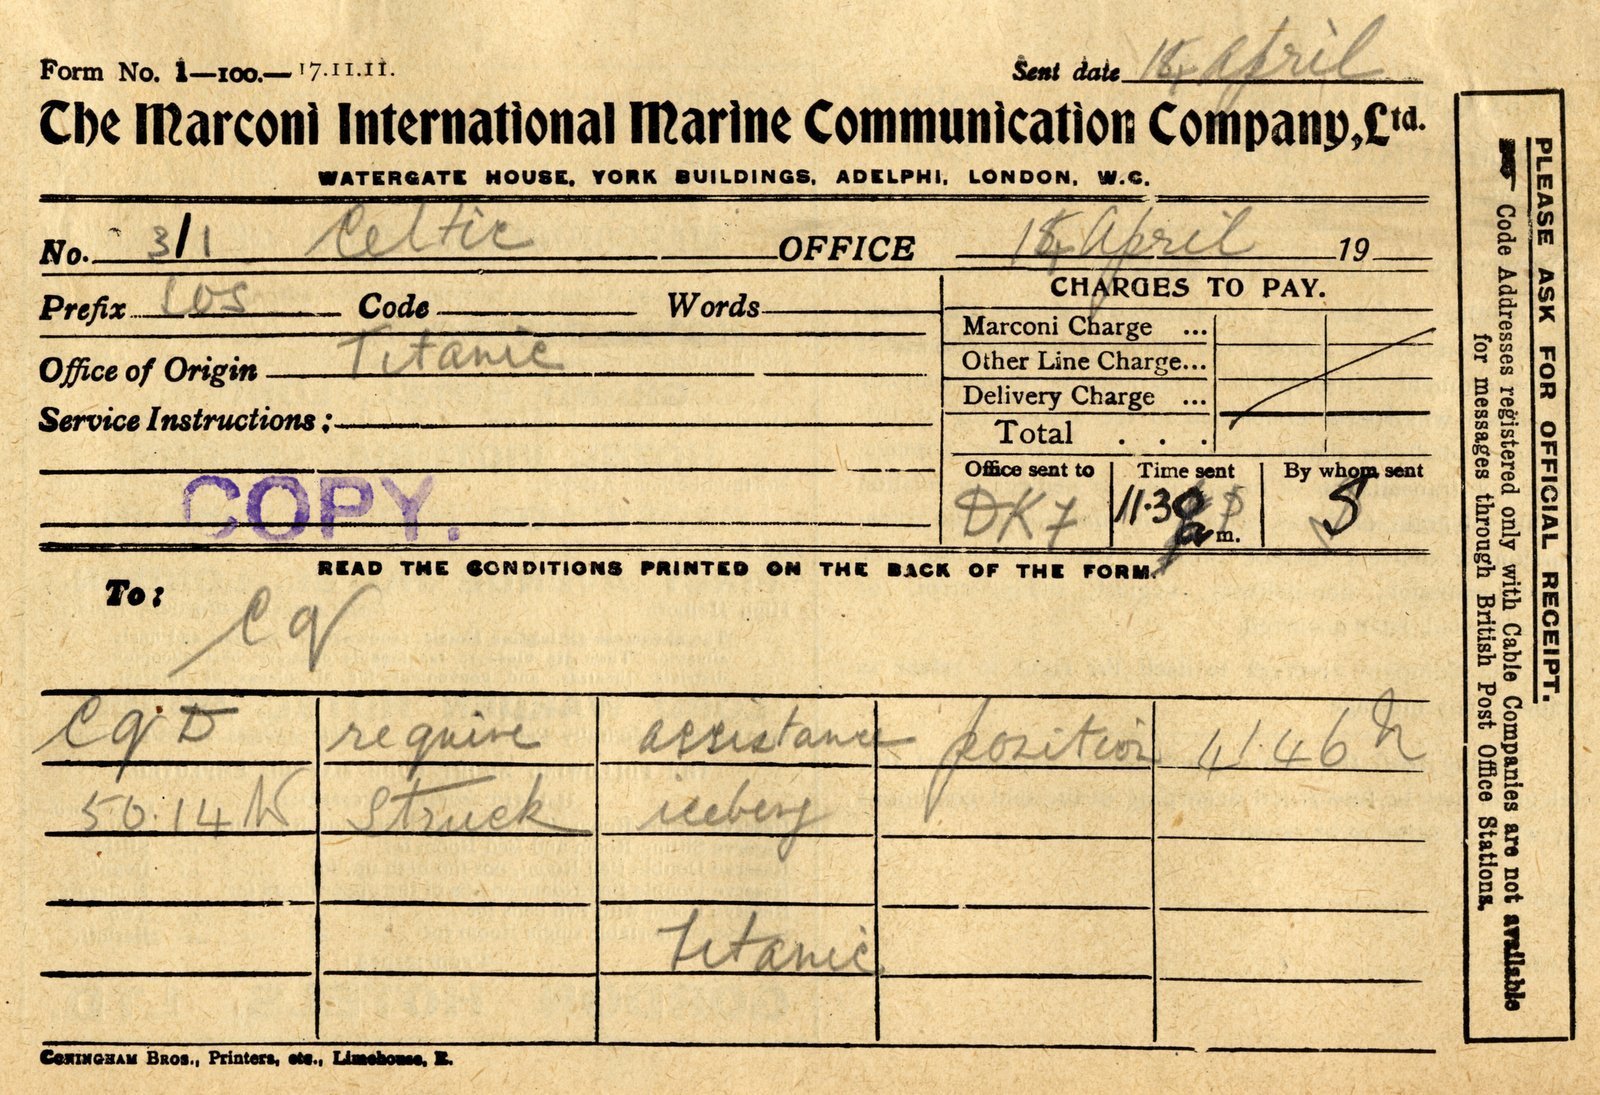 Form No. 1—100.—17.11.11.
Sent date April
The Marconi International Marine Communication Company, Ltd.
WATERGATE HOUSE, YORK BUILDINGS, ADELPHI, LONDON, W.C.
No. 3/1 Celtic OFFICE April 19
Prefix SOS Code Words
CHARGES TO PAY.
Marconi Charge ...
Other Line Charge...
Delivery Charge ...
Total . . .
Office of Origin Titanic
Service Instructions:
COPY.
Office sent to Time sent By whom sent
DKF 11.30 a m. S
READ THE CONDITIONS PRINTED ON THE BACK OF THE FORM.
To:
Cq
CqD require assistance position 41.46 N
50.14 W Struck iceberg
Titanic.
Coningham Bros., Printers, etc., Limehouse, E.
PLEASE ASK FOR OFFICIAL RECEIPT.
Code Addresses registered only with Cable Companies are not available
for messages through British Post Office Stations.